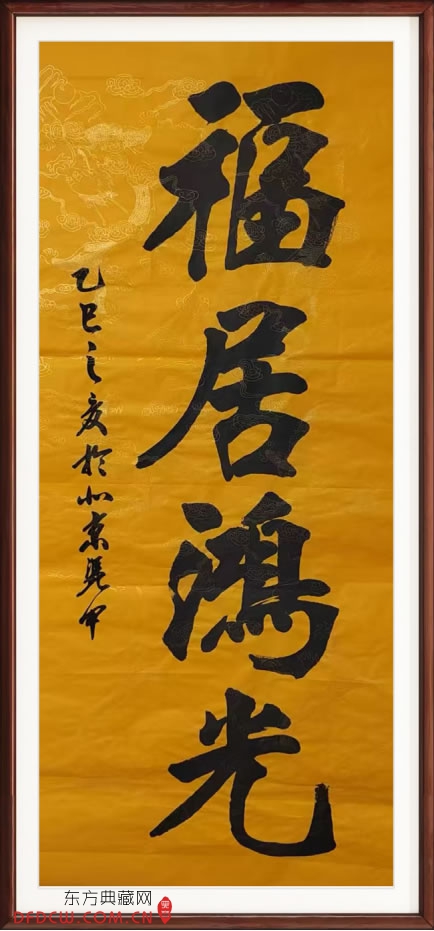 福居鸿光
乙巳之夏於北京
东方典藏网
DFDCW.COM.CN